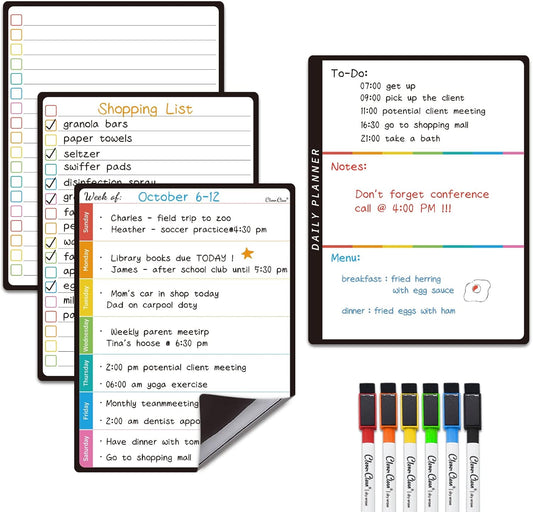 Shopping List
granola bars
paper towels
seltzer
swiffer pads
disinfection spray
Week of: October 6-12
Sunday
Charles - field trip to zoo
Heather - soccer practice#4:30 pm
Monday
Library books due TODAY !
James - after school club until 5:30 pm
Tuesday
Mom's car in shop today
Dad on carpool doty
Wednesday
Weekly parent meetirp
Tina's hoose # 6:30 pm
Thursday
2:00 pm potential client meeting
06:00 am yoga exercise
Friday
Monthly teammeeting
2:00 am dentist appo
Saturday
Have dinner with tom
Go to shopping mall
DAILY PLANNER
To-Do:
07:00 get up
09:00 pick up the client
11:00 potential client meeting
16:30 go to shopping mall
21:00 take a bath
Notes:
Don't forget conference
call @ 4:00 PM !!!
Menu:
breakfast : fried herring
with egg sauce
dinner : fried eggs with ham